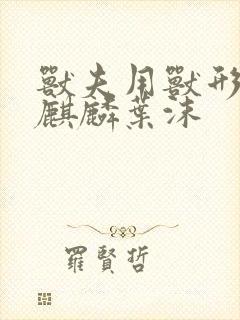 獸夫用獸形
麒麟葉沫
羅賢哲